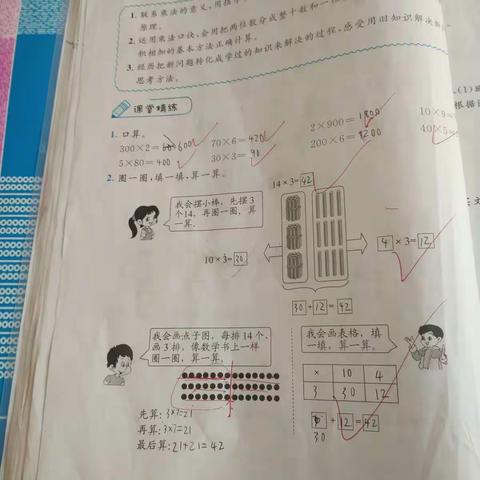 1. 联系乘法的意义,用摆
原理。
2. 运用乘法口诀,会用把两位数分成整十数和一
积相加的基本方法正确计算。
3. 经历把新问题转化成学过的知识来解决的过程,感受用旧知识解决新
思考方法。
课堂精练
1. 口算。
300×2=600 70×6=420 2×900=1800 10×9
5×80=400 30×3=90 200×6= 40 ×5=
2. 圈一圈,填一填,算一算。
14×3=42
我会摆小棒,先摆3
个14,再圈一圈,算
一算。
10×3=30
4×3=12
30+12=42
我会画点子图,每排14个,
画3排,像数学书上一样
圈一圈,算一算。
我会画表格,填
一填,算一算。
× 10 4
3 30 12
先算:3×7=21
再算:3×7=21
最后算:21+21=42
+12=42
30